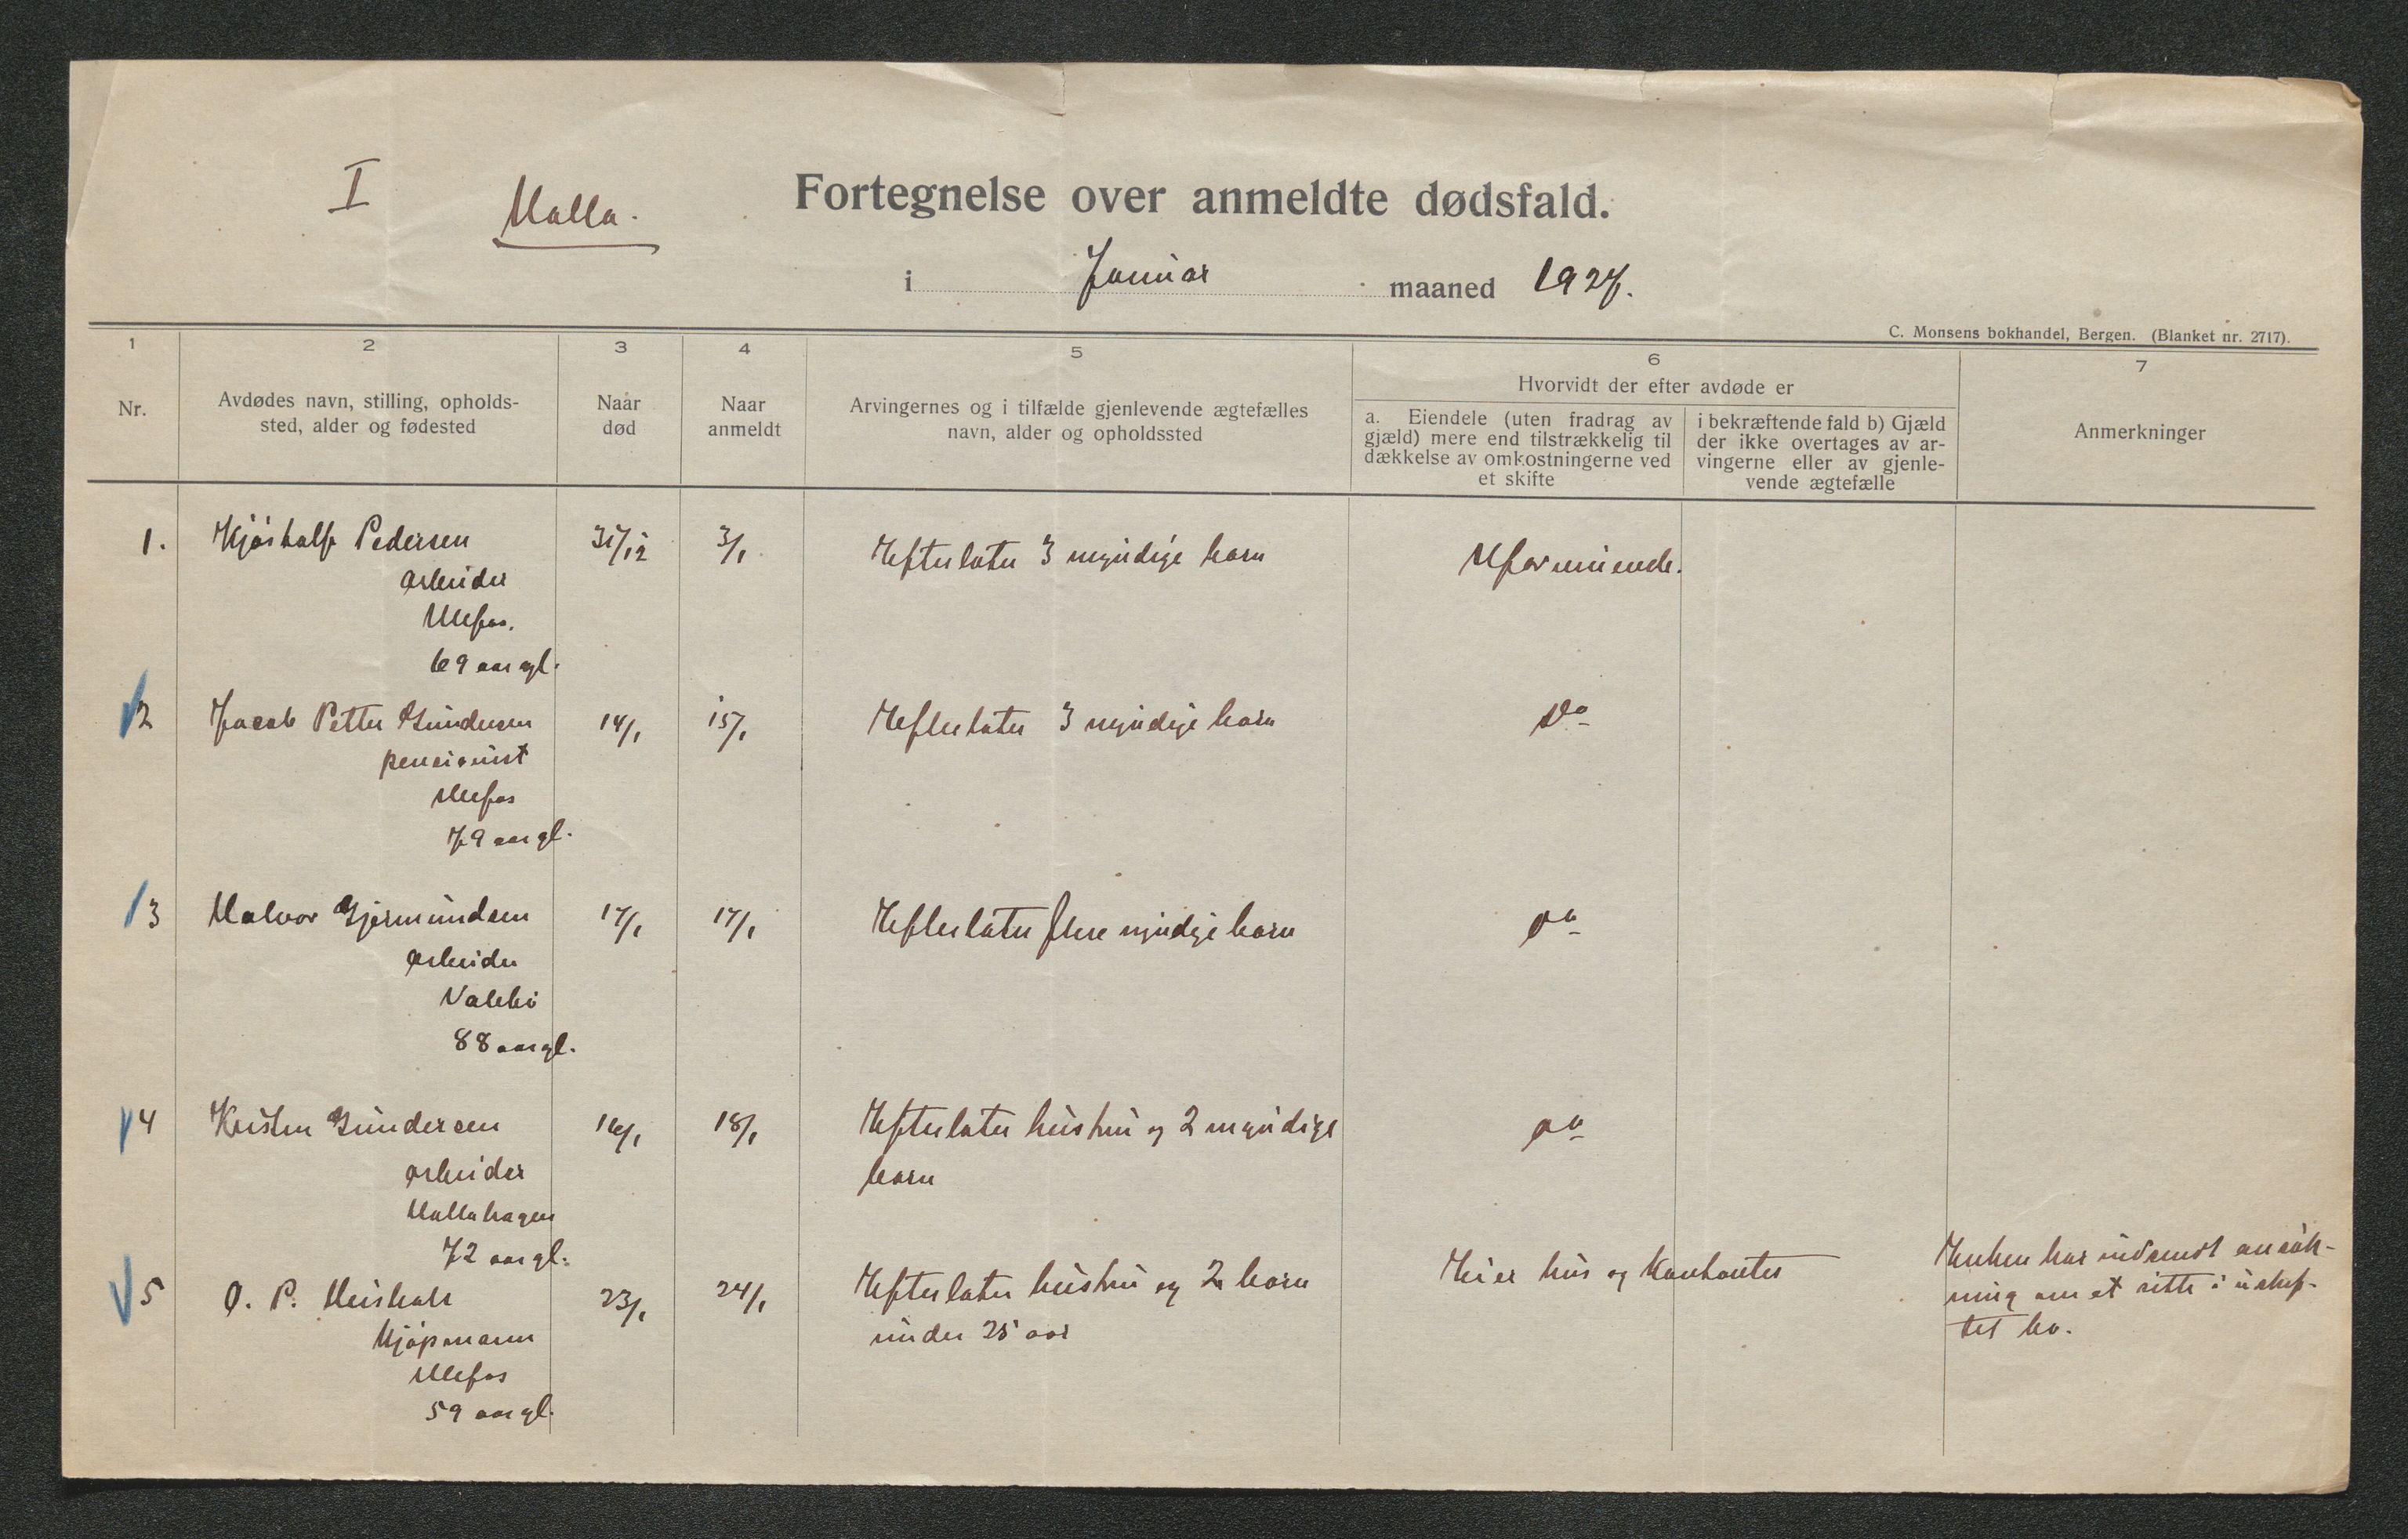 I
Holla.
Fortegnelse over anmeldte dødsfald.
i Januar maaned 1927.
C. Monsens bokhandel, Bergen. (Blanket nr. 2717).
1 2 3 4 5 6 7
Nr.
Avdødes navn, stilling, opholds-
sted, alder og fødested
Naar
død
Naar
anmeldt
Arvingernes og i tilfælde gjenlevende ægtefælles
navn, alder og opholdssted
Hvorvidt der efter avdøde er
a. Eiendele (uten fradrag av
gjæld) mere end tilstrækkelig til
dækkelse av omkostningerne ved
et skifte
i bekræftende fald b) Gjæld
der ikke overtages av ar-
vingerne eller av gjenle-
vende ægtefælle
Anmerkninger
1. Pedersen 31/12 3/1 Efterlater 3 myndige barn Uformuende.
arbeider
Ulefos.
69 aar gl.
2 Jacob Petter Gundersen 14/1 15/1 Efterlater 3 myndige barn Do
pensionist
Ulefos
79 aar gl.
3 Halvor Gjermundsen 17/1 17/1 Efterlater flere myndige barn Do
arbeider
88 aar gl.
4 Kristen Gundersen 16/1 18/1 Efterlater hustru og 2 myndige Do
barn
arbeider
Hollahagen
72 aar gl.
5 O. P. 23/1 24/1 Efterlater hustru og 2 barn Eier hus og
under 25 aar
Kjøpmann
Ulefos
59 aar gl.
Enken har indsendt ansøk-
ning om at sitte i uskif-
tet bo.